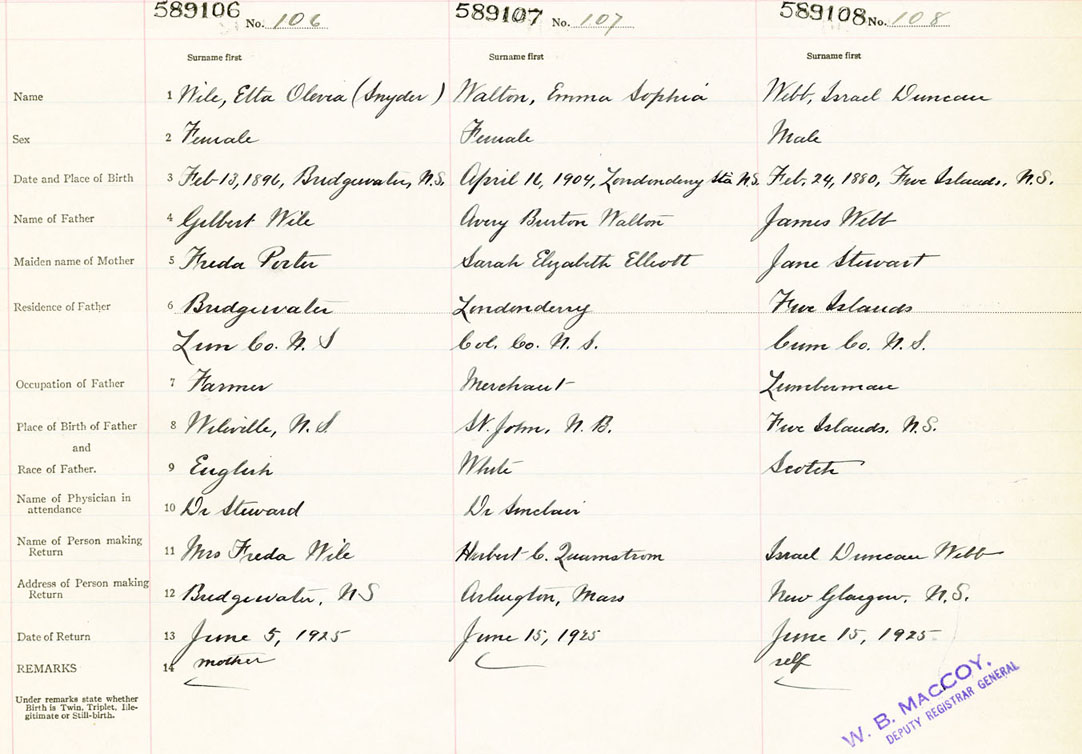 589106 No. 106 589107 No. 107 589108 No. 108
Surname first Surname first Surname first
Name 1 Wile, Etta Olevia (Snyder) Walton, Emma Sophia Webb, Israel Duncan
Sex 2 Female Female Male
Date and Place of Birth 3 Feb 13, 1896, Bridgewater, N.S. April 16, 1904, Londonderry Sta N.S. Feb. 24, 1880, Five Islands, N.S.
Name of Father 4 Gilbert Wile Avery Burton Walton James Webb
Maiden name of Mother 5 Freda Porter Sarah Elizabeth Elliott Jane Stewart
Residence of Father 6 Bridgewater Londonderry Five Islands
Lun Co. N. S Col. Co. N. S. Cum Co. N. S.
Occupation of Father 7 Farmer Merchant Lumberman
Place of Birth of Father 8 Wileville, N. S St. John, N. B. Five Islands. N.S.
and
Race of Father. 9 English White Scotch
Name of Physician in
attendance 10 Dr Steward Dr Sinclair
Name of Person making
Return 11 Mrs Freda Wile Herbert C. Quarnstrom Israel Duncan Webb
Address of Person making
Return 12 Bridgewater, N S Arlington, Mass New Glasgow, N.S.
Date of Return 13 June 5, 1925 June 15, 1925 June 15, 1925
REMARKS 14 mother self
Under remarks state whether
Birth is Twin, Triplet, Ille-
gitimate or Still-birth.
W. B. MACCOY,
DEPUTY REGISTRAR GENERAL